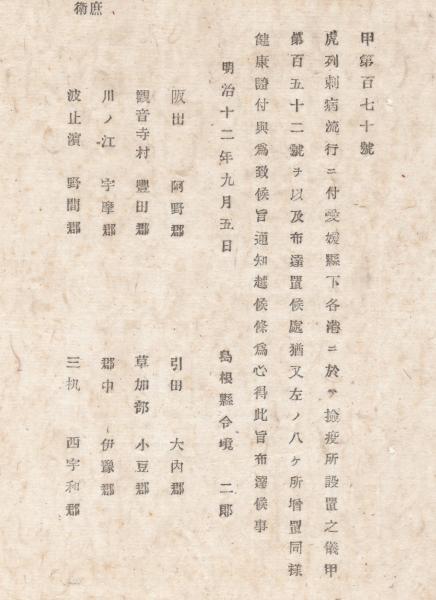 甲第百七十號
虎列刺病流行ニ付愛媛縣下各港ニ於テ撿疫所設置之儀甲
第百五十二號ヲ以及布達置候處猶又左ノ八ケ所增置同樣
健康證付與爲致候旨通知越候條爲心得此旨布達候事
明治十二年九月五日
島根縣令境二郎
阪出 阿野郡 引田 大內郡
觀音寺村 豐田郡 草加部 小豆郡
川ノ江 宇摩郡 郡中 伊豫郡
波止濱 野間郡 三机 西宇和郡
庶
衛